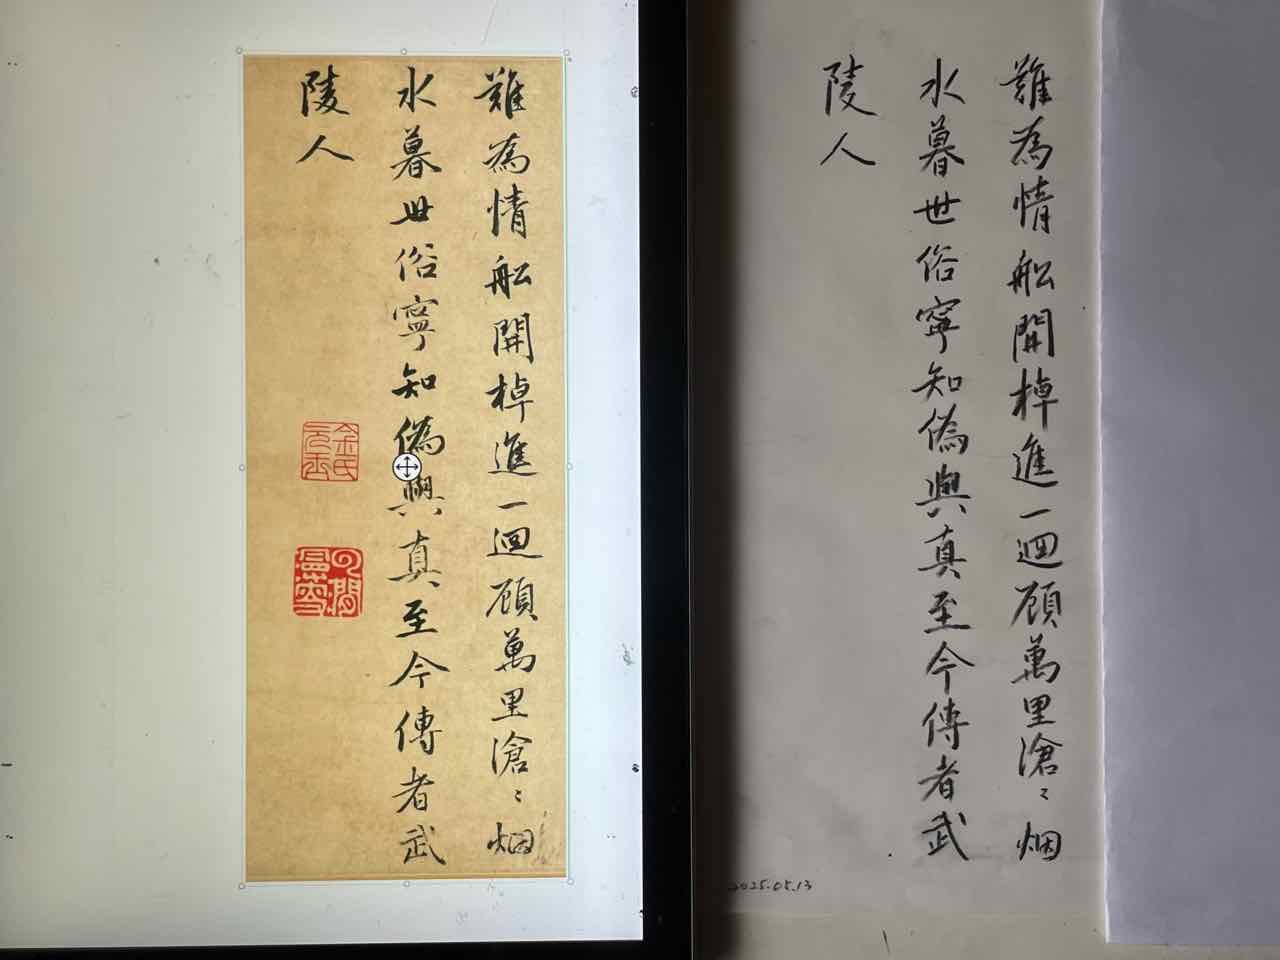 難為情舩開棹進一迴顧萬里滄〻烟
水暮世俗寧知偽與真至今傳者武
陵人
難為情舩開棹進一迴顧萬里滄〻烟
水暮世俗寧知偽與真至今傳者武
陵人
2025.05.13